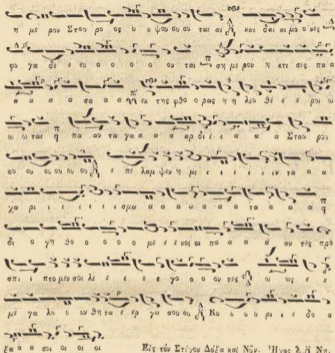 η με ρον Σταυ ρο ος ο υ ψου ου ου ται αι και δαι αι μο ο νες
φυ γα δε ε υ ο ο ο ο ου ται ση με ρον η κτι σις πα
α α α σα α α εκ της φθο ρας η η λευ θε ε ε ρω
ω ω ται πα αν τα γα α α α ρ δι ι ι α α Σταυ ρου
ου ου ου ου ου ου ε πε λαμ ψεν η μι ι ι ι ιν τα α α
χα ρι ι ι ι ι ι σμα α α α α α τα α α α
δι ο γη θο ο ο ο ο με ε ε νοι οι πα α α α αν τες προ
σπι ι πτο μεν σοι λε ε ε ε γο ο ο ον τες ω ως ε ε
με γα λυ υ υν θη τα ε ρ γα σου ου Κυ υ υ υ ρι ε δο ο
ξα α α σοι οι οι οι Εἰς τὸν Στίχον Δόξα καὶ Νῦν. Ἦχος